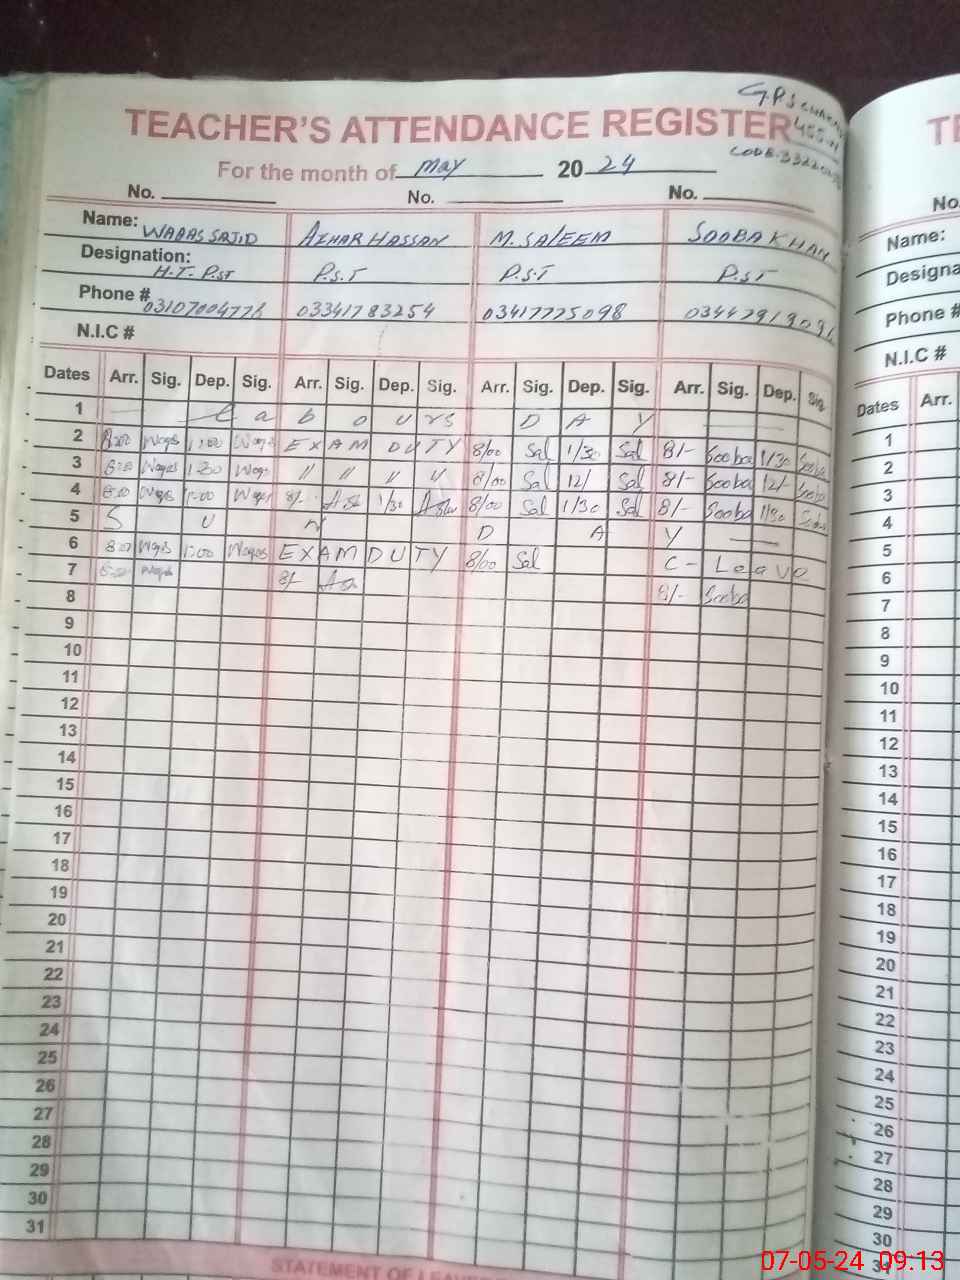 G.P.S
TEACHER'S ATTENDANCE REGISTER
CODE-
For the month of May 2024
No. No. No.
Name: WAQAS SAJID AZHAR HASSAN M. SALEEM SOOBA KHAN
Designation: H.T. P.ST P.S.T P.S.T P.ST
Phone # 03341783254 03417775098
N.I.C #
Dates Arr. Sig. Dep. Sig. Arr. Sig. Dep. Sig. Arr. Sig. Dep. Sig. Arr. Sig. Dep. Sig.
1 L a b o u r s D A Y
2 8:00 Waqas 1:00 Waqas EXAM DUTY 8/00 Sal 1/30 Sal 8/- Sooba 1/30 Sooba
3 8:00 Waqas Waqas // // // // 8/00 Sal 12/ Sal 8/- Sooba 12/- Sooba
4 8:00 Waqas 1:00 Waqas 8/- 1/30 8/00 Sal 1/30 Sal 8/- Sooba 1/30 Sooba
5 S U N D A Y
6 8:00 Waqas 1:00 Waqas EXAM DUTY 8/00 Sal C - Leave
7 8:00 Waqas 8/- 8/- Sooba
8
9
10
11
12
13
14
15
16
17
18
19
20
21
22
23
24
25
26
27
28
29
30
31
STATEMENT OF
No.
Name:
Phone #
N.I.C #
Dates Arr.
1
2
3
4
5
6
7
8
9
10
11
12
13
14
15
16
17
18
19
20
21
22
23
24
25
26
27
28
29
30
31
07-05-24 09:13